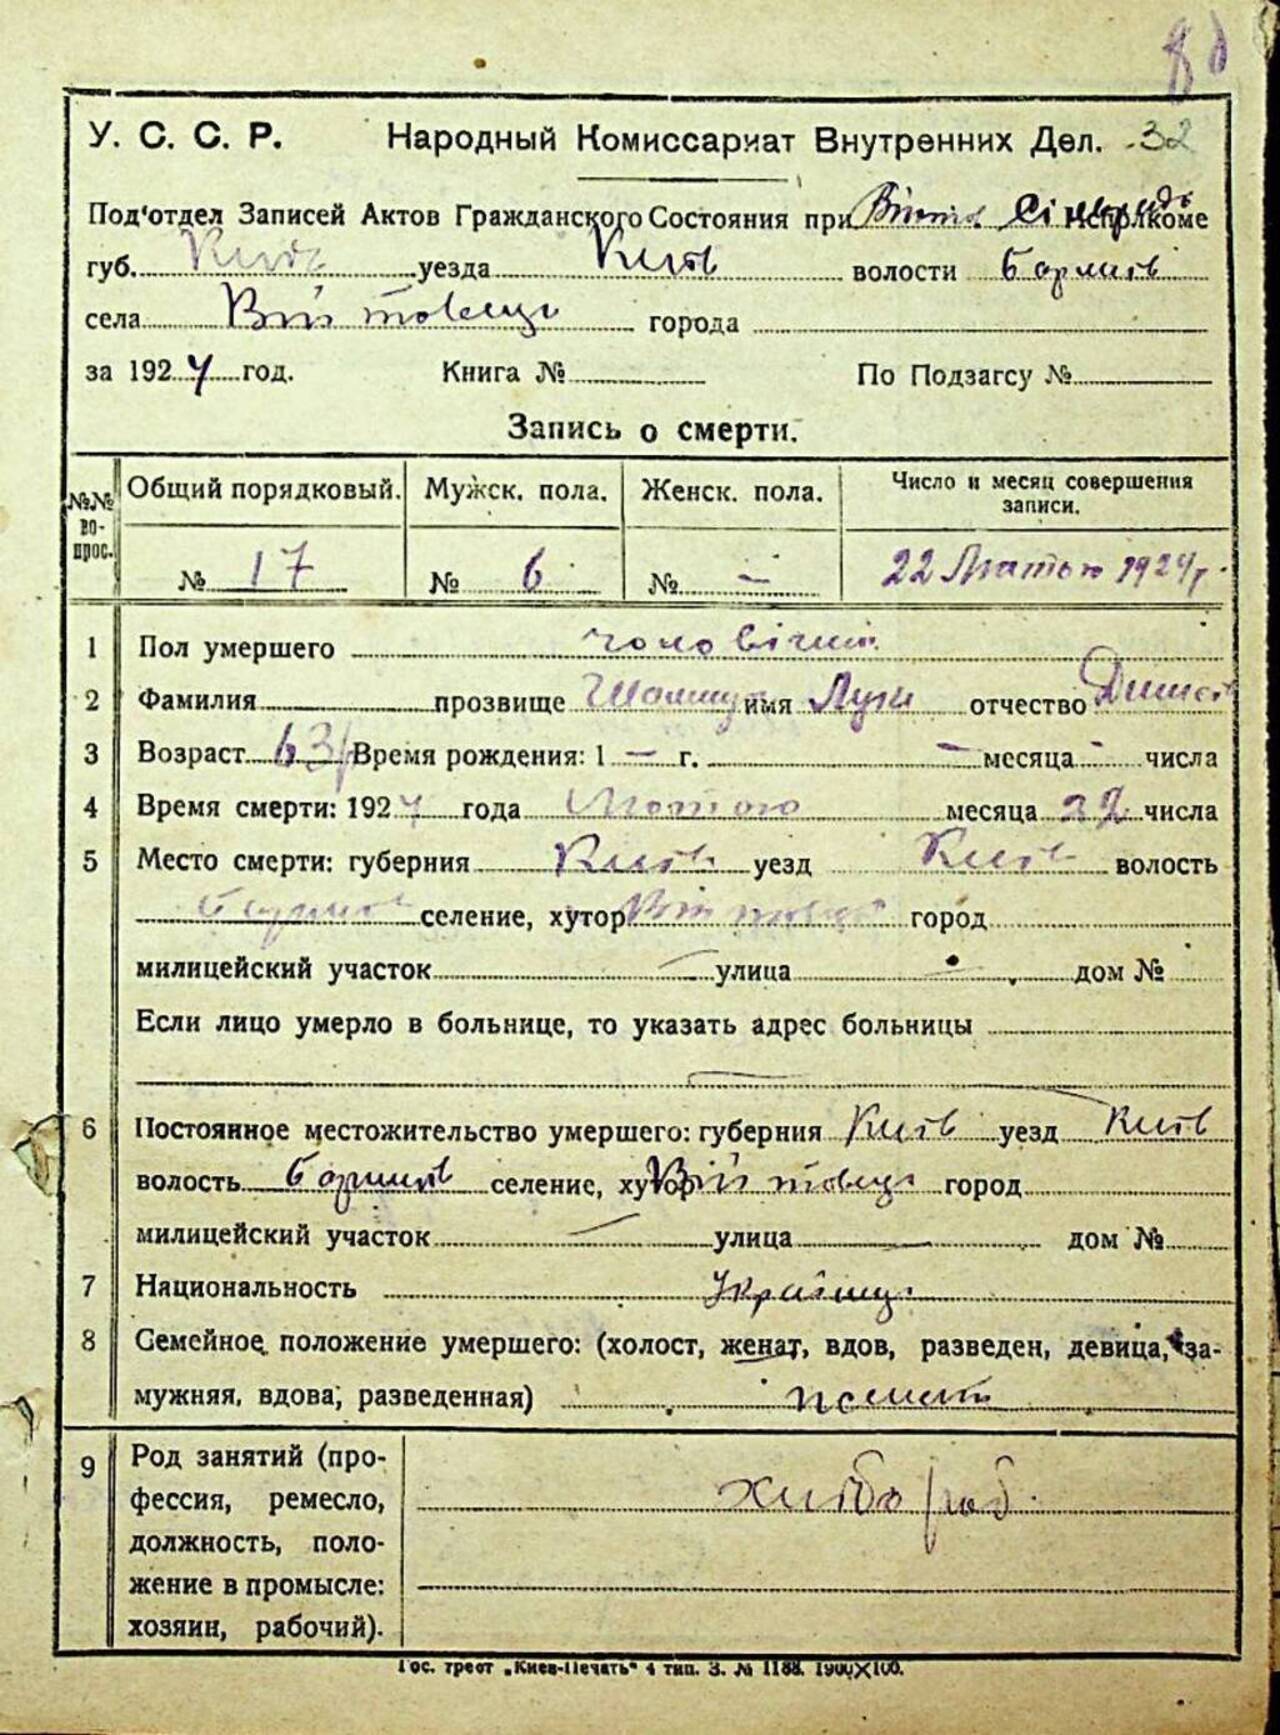 У. С. С. Р. Народный Комиссариат Внутренних Дел. 32
Под'отдел Записей Актов Гражданского Состояния при Исполкоме
губ. Київ уезда Київ волости Бориспіл
села Війтовці города
за 1924 год. Книга № По Подзагсу №
Запись о смерти.
№№ во-прос. Общий порядковый. Мужск. пола. Женск. пола. Число и месяц совершения записи.
№ 17 № 6 № — 22 Лютого 1924 р.
1 Пол умершего чоловічий
2 Фамилия прозвище имя Лука отчество
3 Возраст 63 р Время рождения: 1 — г. — месяца — числа
4 Время смерти: 1924 года Лютого месяца 22 числа
5 Место смерти: губерния Київ уезд Київ волость
селение, хутор Війтовці город
милицейский участок — улица дом №
Если лицо умерло в больнице, то указать адрес больницы
—
6 Постоянное местожительство умершего: губерния Київ уезд Київ
волость селение, хутор Війтовці город
милицейский участок — улица — дом №
7 Национальность Українец
8 Семейное положение умершего: (холост, женат, вдов, разведен, девица, за-
мужняя, вдова, разведенная) женат
9 Род занятий (про-
фессия, ремесло, хлібороб.
должность, поло-
жение в промысле:
хозяин, рабочий).
Гос. трест „Киев-Печать" 4 тип. З. № 1188. 1900X100.